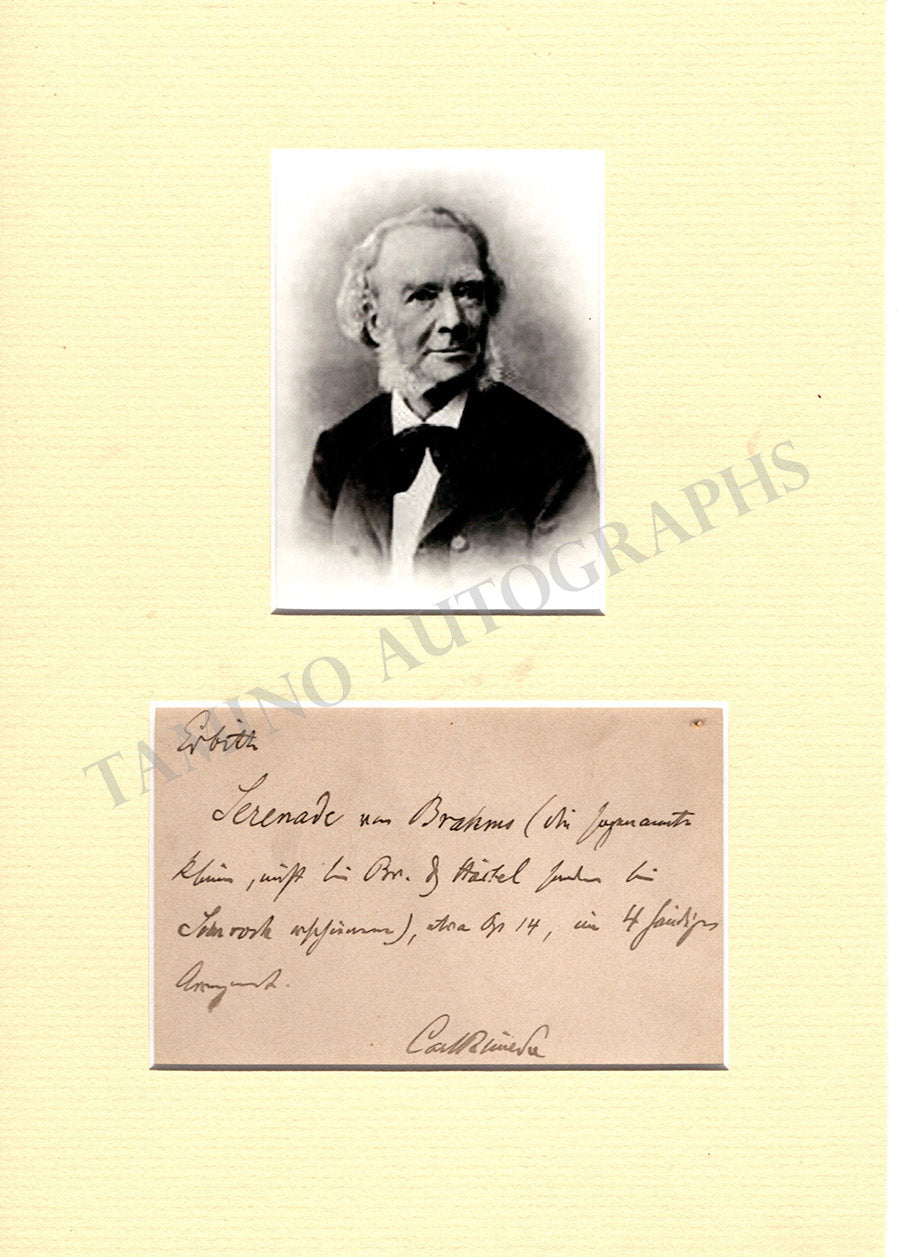 TAMINO AUTOGRAPHS
Erbitte
Serenade von Brahms (die sogenannte
kleine, nicht bei Br. & Härtel sondern bei
Simrock erschienen), etwa Op 14, im 4 händigen
Arrangement.
Carl Reinecke